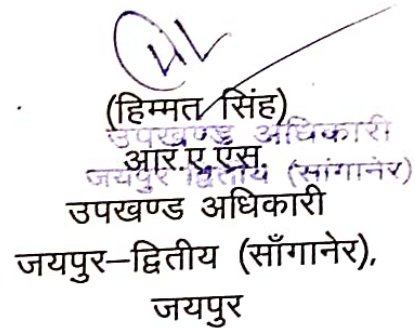 (हिम्मत सिंह)
उपखण्ड अधिकारी
आर.ए.एस.
जयपुर द्वितीय (सांगानेर)
उपखण्ड अधिकारी
जयपुर–द्वितीय (साँगानेर),
जयपुर